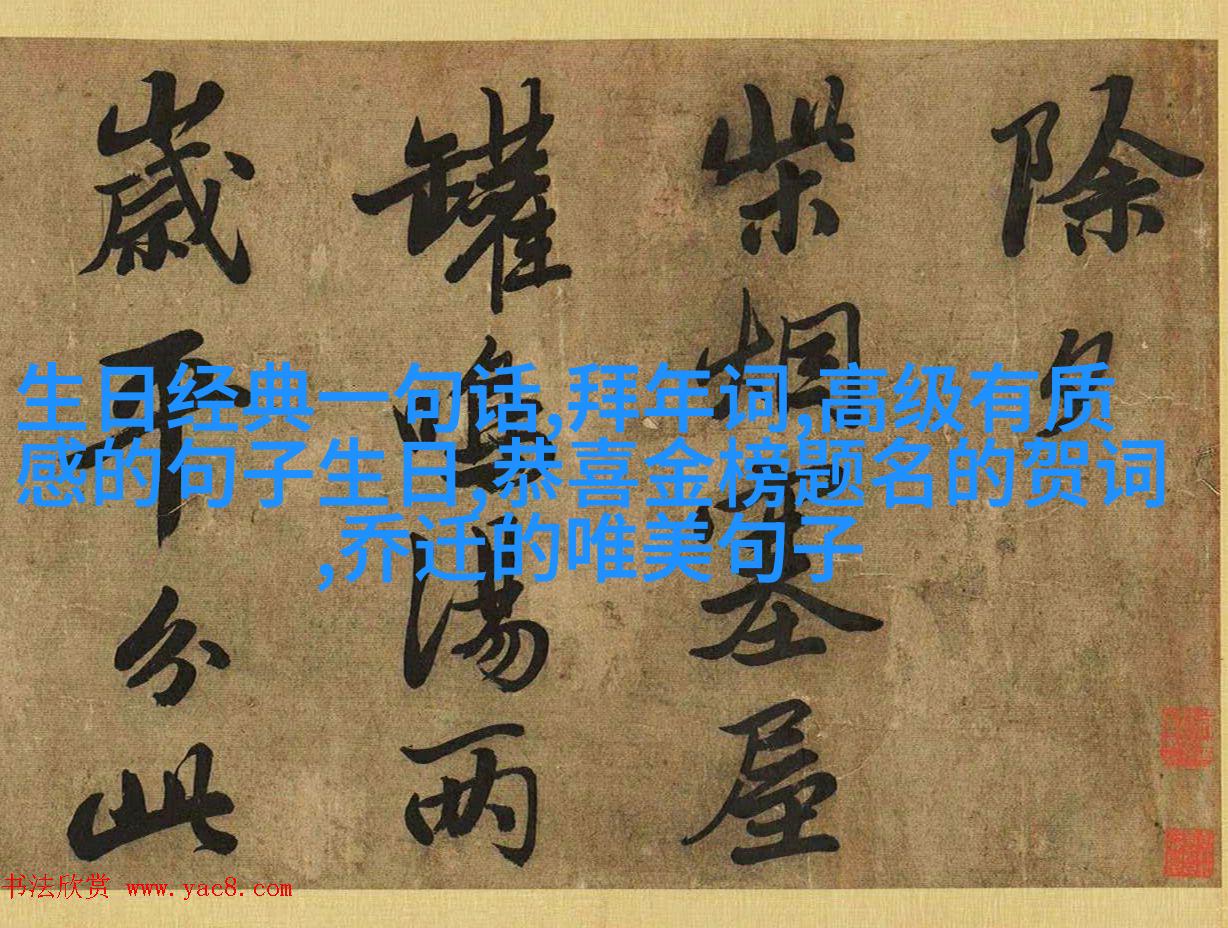 除夕
柴烟塞屋
罐鳴湯兩
歲平分此
生日经典一句话,拜年词,高级有质
感的句子生日,恭喜金榜题名的贺词
,乔迁的唯美句子
书法欣赏 www.yac8.com